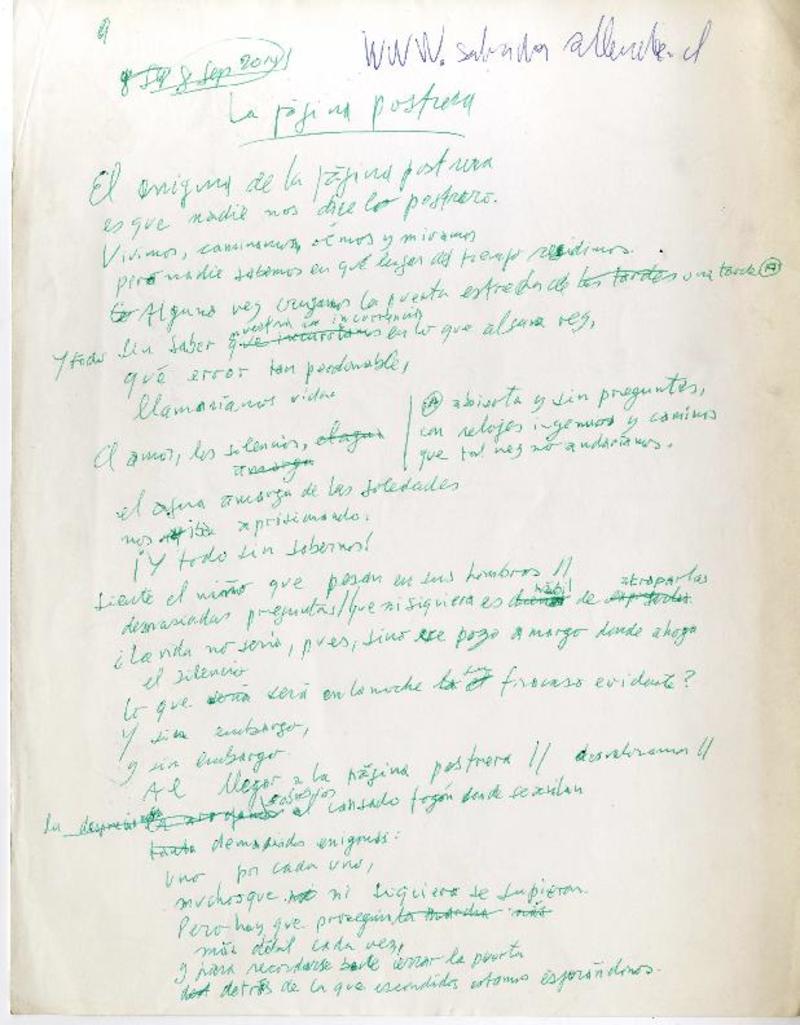 www.salvador allende.cl
8 Sep 8 Sep 2011
La página postrera
El enigma de la página postrera
es que nadie nos dice lo postrero.
Vivimos, caminamos, oímos y miramos
pero nadie sabemos en qué lugar del tiempo residimos.
Alguna vez cruzamos la puerta estrecha de las tardes una tarde (A)
nuestra in incurrencia
Y todo sin saber que incurríamos en lo que alguna vez,
qué error tan perdonable,
llamaríamos vida.
(A) abierta y sin preguntas,
con relojes ingenuos y caminos
que tal vez no andaríamos.
El amor, los silencios, el agua
amarga
el agua amarga de las soledades
nos iba aprisionando.
¡Y todo sin sabernos!
Siente el niño que pesan en sus hombros //
demasiadas preguntas // que ni siquiera es hábil de
¿La vida no sería, pues, sino ese pozo amargo donde ahoga
el silencio
lo que sería será en la noche fracaso evidente?
Y sin embargo,
y sin embargo.
Al llegar a la página postrera // desvaloramos //
la el cansado fogón donde se asilan
tanta demasiados enigmas:
uno por cada uno,
muchos que no ni siquiera se supieron.
Pero hay que proseguir la marcha más
más débil cada vez,
y para recordarse cerrar la puerta
detrás de la que escondidos estamos esperándonos.